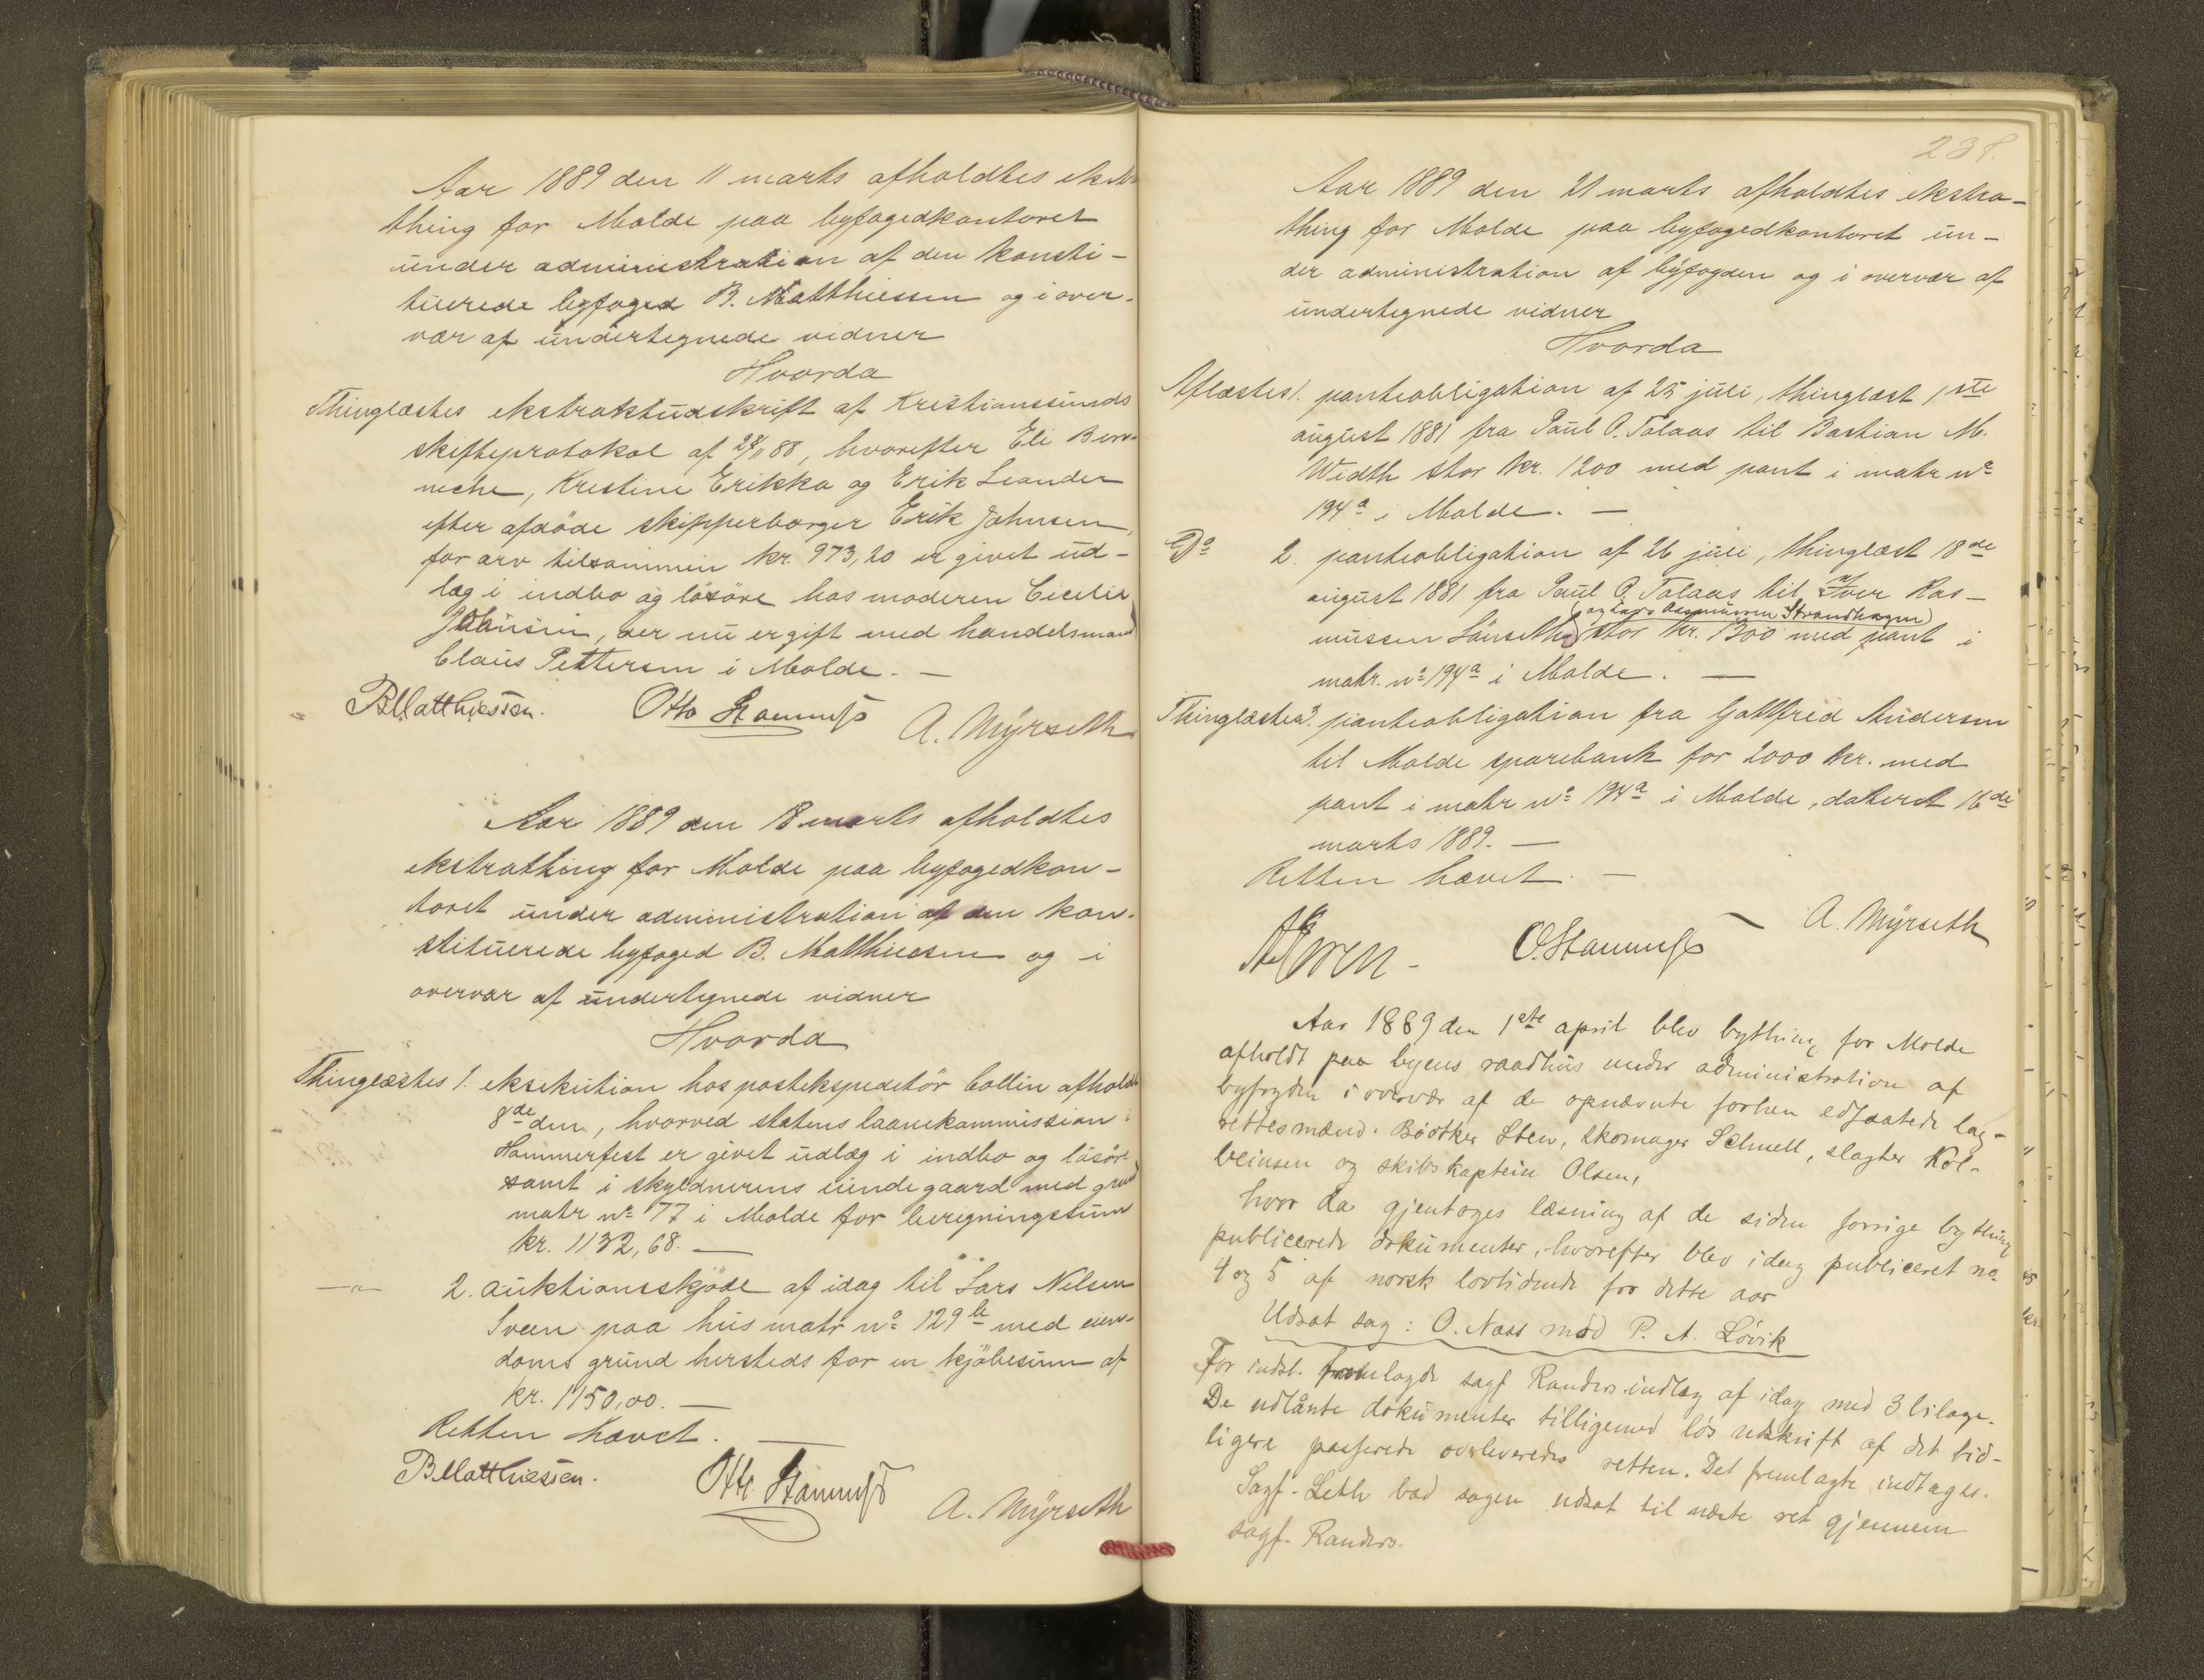 Aar 1889 den 11 marts afholdtes ekstra
thing for Molde paa byfogedkontoret
under administration af den konsti-
tuerede byfoged B. Matthiessen og i over-
vær af undertegnede vidner
Hvorda
Thinglæstes ekstraktudskrift af Kristianssunds
skifteprotokol af 28/11 88, hvorefter Eli
Kristine Erikka og Erik Leander
efter afdöde skipperborger Erik Johnsen,
for arv tilsammen kr. 973,20 er givet ud-
læg i indbo og lösöre hos moderen Cicilie
Johnsen, der nu er gift med handelsmand
Claus Pettersen i Molde. —
BMatthiessen. Otto A. Myrseth
Aar 1889 den 18 marts afholdtes
ekstrathing for Molde paa byfogedkon-
toret under administration af den kon-
stituerede byfoged B. Matthiessen og i
overvær af undertegnede vidner
Hvorda
Thinglæstes 1. eksekution hos postekspeditör Collin afholdt
8de den., hvorved statens laanekommission i
Hammerfest er givet udlæg i indbo og lösöre
samt i skyldnerens eiende gaard med grund
matr no 77 i Molde for beregningssum
kr. 1132,68. —
—"— 2. auktionsskjöde af idag til Lars Nilsen
Sveen paa hus matr no 129b med eien-
doms grund hersteds for en kjöbesum af
kr. 1150,00. —
Retten hævet. —
BMatthiessen. Otto A. Myrseth
238.
Aar 1889 den 21 marts afholdtes ekstra-
thing for Molde paa byfogedkontoret un-
der administration af byfogden og i overvær af
undertegnede vidner
Hvorda
Aflæstes 1. panteobligation af 25 juli, thinglæst 1ste
august 1881 fra Paul O. Talaas til Bastian M.
Width stor kr. 1200 med pant i matr no
194a i Molde. —
Do 2. panteobligation af 26 juli, thinglæst 18de
august 1881 fra Paul O. Talaas til Iver Ras-
(og Lars Rasmussen Strandhagen)
mussen Lönseth stor kr. 1300 med pant i
matr. no 194a i Molde. —
Thinglæstes 3. panteobligation fra Gottfred Andersen
til Molde sparebank for 2000 kr. med
pant i matr no 194a i Molde, dateret 16de
marts 1889. —
Retten hævet. —
A. Myrseth
Aar 1889 den 1ste april blev bything for Molde
afholdt paa byens raadhus under administration af
byfogden i overvær af de opnævnte forhen edfæstede lag-
rettesmænd: Bödtker Sten, skomager Schnell, slagter Kol-
beinsen og skibskaptein Olsen,
hvor da gjentoges læsning af de siden forrige bything
publicerede dokumenter, hvorefter blev idag publiceret no
4 og 5 af norsk lovtidende for dette aar
Udsat sag: O. Næss mod P. A. Lövik
For indst. fremlagde sagf Randers indlæg af idag med 3 bilage.
De udlånte dokumenter tilligemed lös udskrift af det tid-
ligere passerede overleveredes retten. Det fremlagte indtages.
Sagf. Leth bad sagen udsat til næste ret gjennem
sagf. Randers.